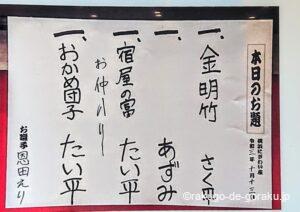 本日のお題
横浜にぎわい座
令和三年 十月十三日
一、金明竹 さく平
一、 あずみ
お仲入り
一、宿屋の富 たい平
一、おかめ団子 たい平
お囃子 恩田えり
©rakugo-de-goraku.jp